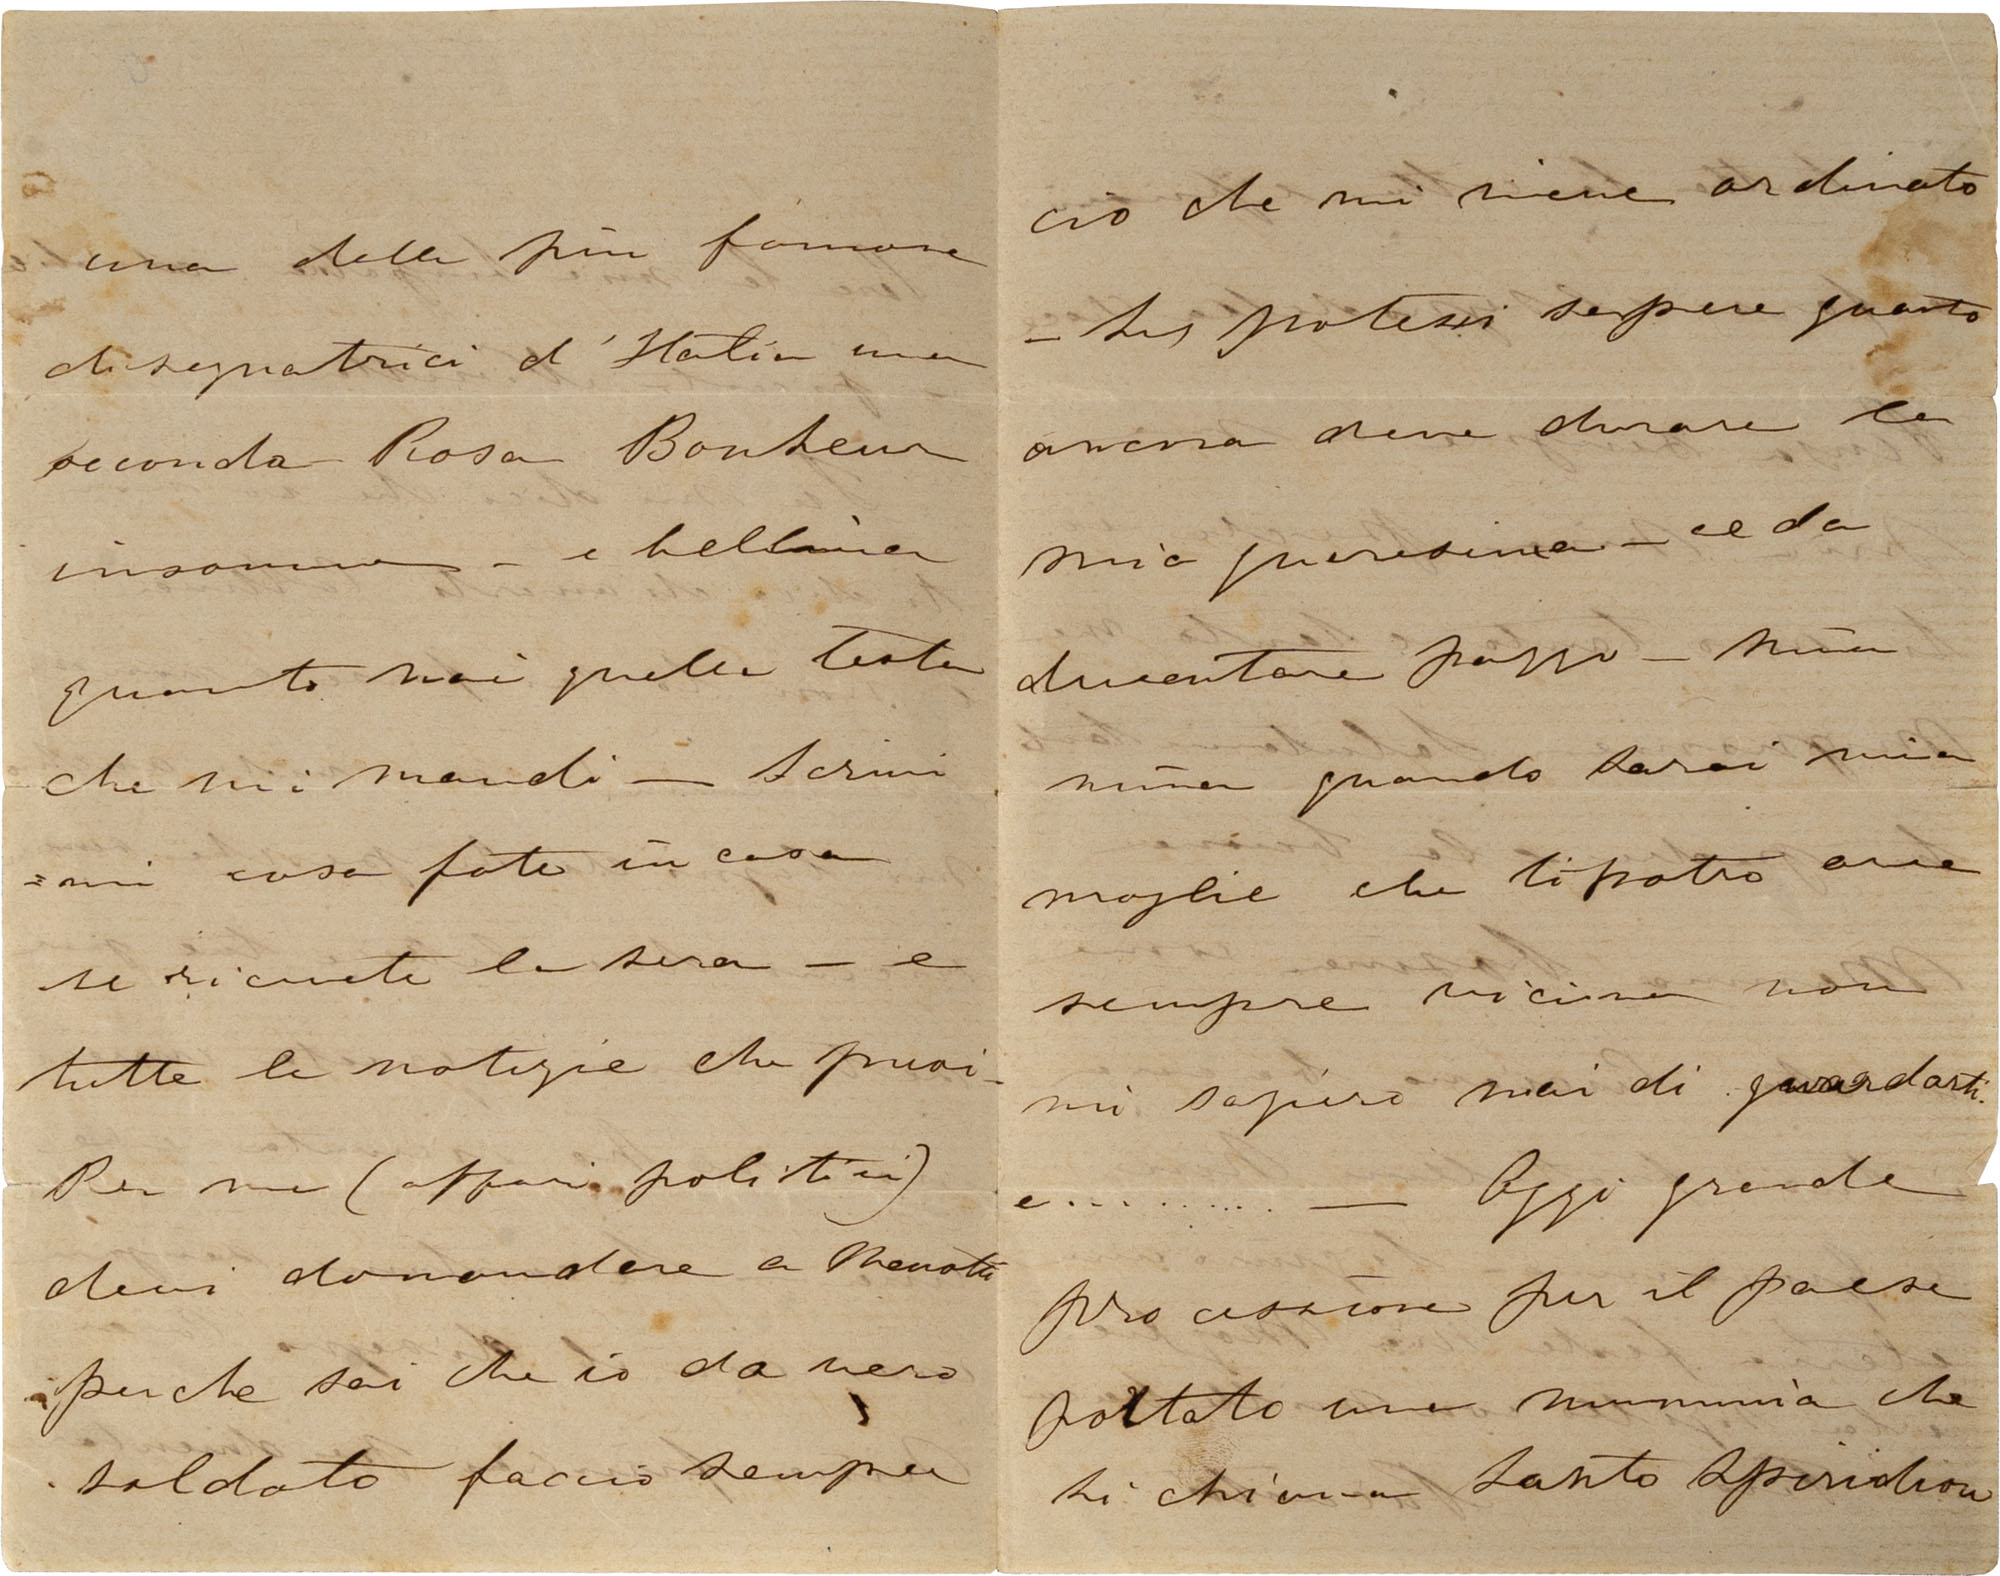 una delle più famose
disegnatrici d'Italia una
seconda Rosa Bonheur
insomma - e bellina
quanto mai quella testa
che mi mandi — Scrivi
=mi cosa fate in casa
se ricevete la sera — e
tutte le notizie che puoi -
Per me (affari politici)
devi domandare a Menotti
perche sai che io da vero
soldato faccio sempre
cio che mi viene ordinato
- Se potessi sapere quanto
ancora deve durare la
mia quaresima — ce da
diventare pazzo — niña
niña quando sarai mia
moglie che ti potro aver
sempre vicina non
mi sapiro mai di guardarti.
e ......... — Oggi grande
processione per il paese
portato una mummia che
si chiama Santo Spiridion